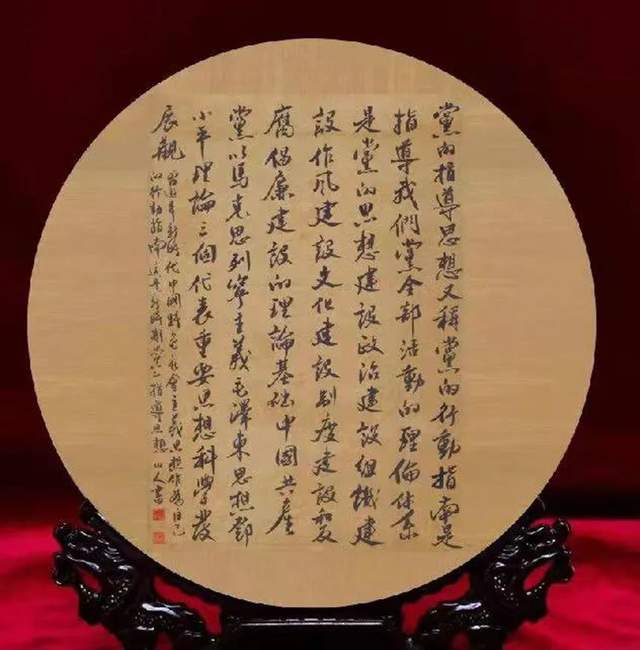 黨的指導思想又稱黨的行動指南是
指導我們黨全部活動的理倫体系
是黨的思想建设政治建设組織建
設作风建設文化建設制度建設和反
腐倡廉建設的理論基础中國共產
黨以馬克思列寧主義毛澤東思想鄧
小平理論三個代表重要思想科學發
展觀 習近平新時代中國特色社會主義思想作為自己
的行動指南 新時期黨之指導思想 山人書